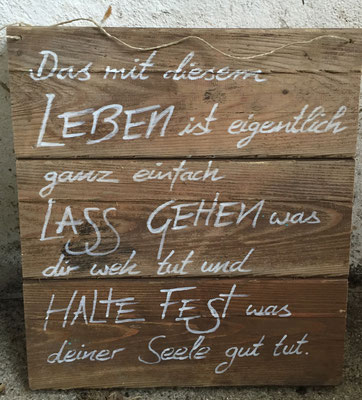 Das mit diesem
LEBEN ist eigentlich
ganz einfach
LASS GEHEN was
dir weh tut und
HALTE FEST was
deiner Seele gut tut.